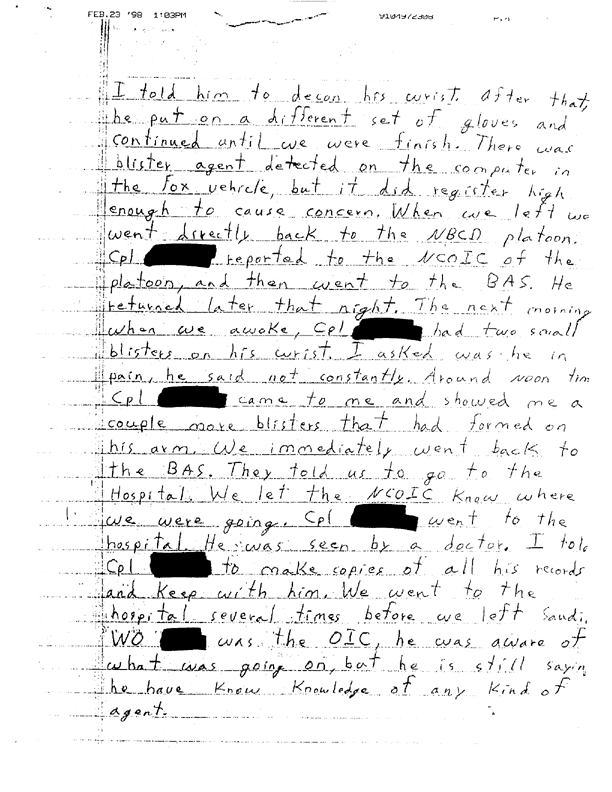 FEB.23 '98 1:03PM 9104972309 P.4
I told him to decon his wrist. After that,
he put on a different set of gloves and
continued until we were finish. There was
blister agent detected on the computer in
the Fox vehicle, but it did register high
enough to cause concern. When we left we
went directly back to the NBCD platoon.
Cpl reported to the NCOIC of the
platoon, and then went to the BAS. He
returned later that night. The next morning
when we awoke, Cpl had two small
blisters on his wrist. I asked was he in
pain, he said not constantly. Around noon tim
Cpl came to me and showed me a
couple more blisters that had formed on
his arm. We immediately went back to
the BAS. They told us to go to the
Hospital. We let the NCOIC know where
we were going. Cpl went to the
hospital. He was seen by a doctor. I told
Cpl to make copies of all his records
and keep with him. We went to the
hospital several times before we left Saudi.
WO was the OIC, he was aware of
what was going on, but he is still sayin
he have know knowledge of any kind of
agent.